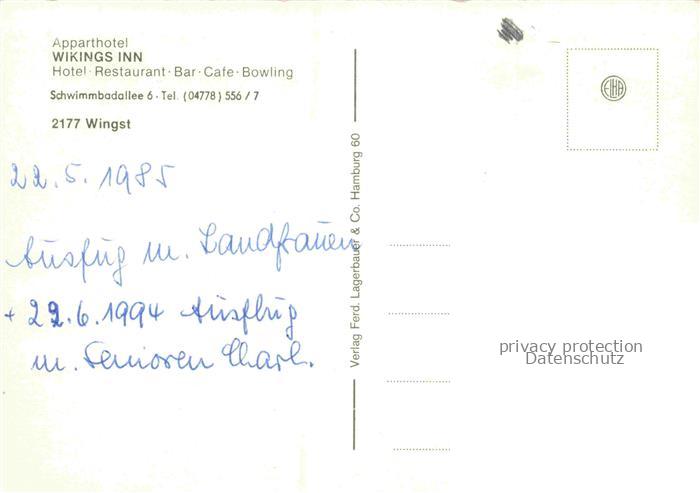 Apparthotel
WIKINGS INN
Hotel · Restaurant · Bar · Cafe · Bowling
Schwimmbadallee 6 · Tel. (04778) 556 / 7
2177 Wingst
22.5.1985
Ausflug m. Landfrauen
+ 22.6.1994 Ausflug
m. Senioren Charl.
Verlag Ferd. Lagerbauer & Co. Hamburg 60
ELHA
privacy protection
Datenschutz